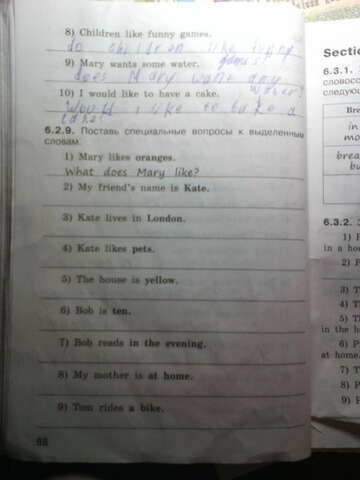 8) Children like funny games.
do children like funny
games
9) Mary wants some water.
does Mary want any
water?
10) I would like to have a cake.
Would i like to take a
cake?
6.2.9. Поставь специальные вопросы к выделенным
словам.
1) Mary likes oranges.
What does Mary like?
2) My friend's name is Kate.
3) Kate lives in London.
4) Kate likes pets.
5) The house is yellow.
6) Bob is ten.
7) Bob reads in the evening.
8) My mother is at home.
9) Tom rides a bike.
68
Sectio
6.3.1.
словосо
следую
Bre
in
mo
brea
bu
6.3.2.
1) F
in a hou
2) F
3) T
4) T
5) T
in the h
6) P
at home
7) T
8) P
9) F